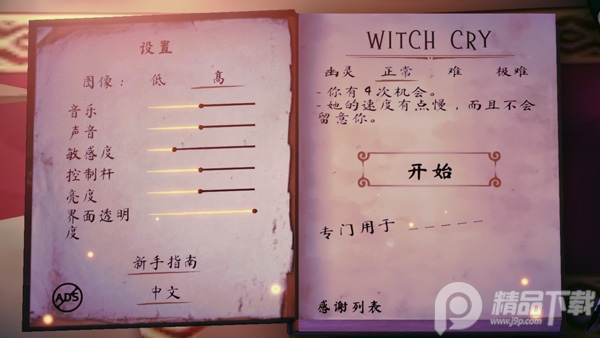 设置
图像： 低 高
音乐
声音
敏感度
控制杆
亮度
界面透明
度
新手指南
中文
ADS
WITCH CRY
幽灵 正常 难 极难
- 你有4次机会。
- 她的速度有点慢，而且不会
留意你。
开始
专门用于 _ _ _ _ _
感谢列表
精品下载
www.j9p.com